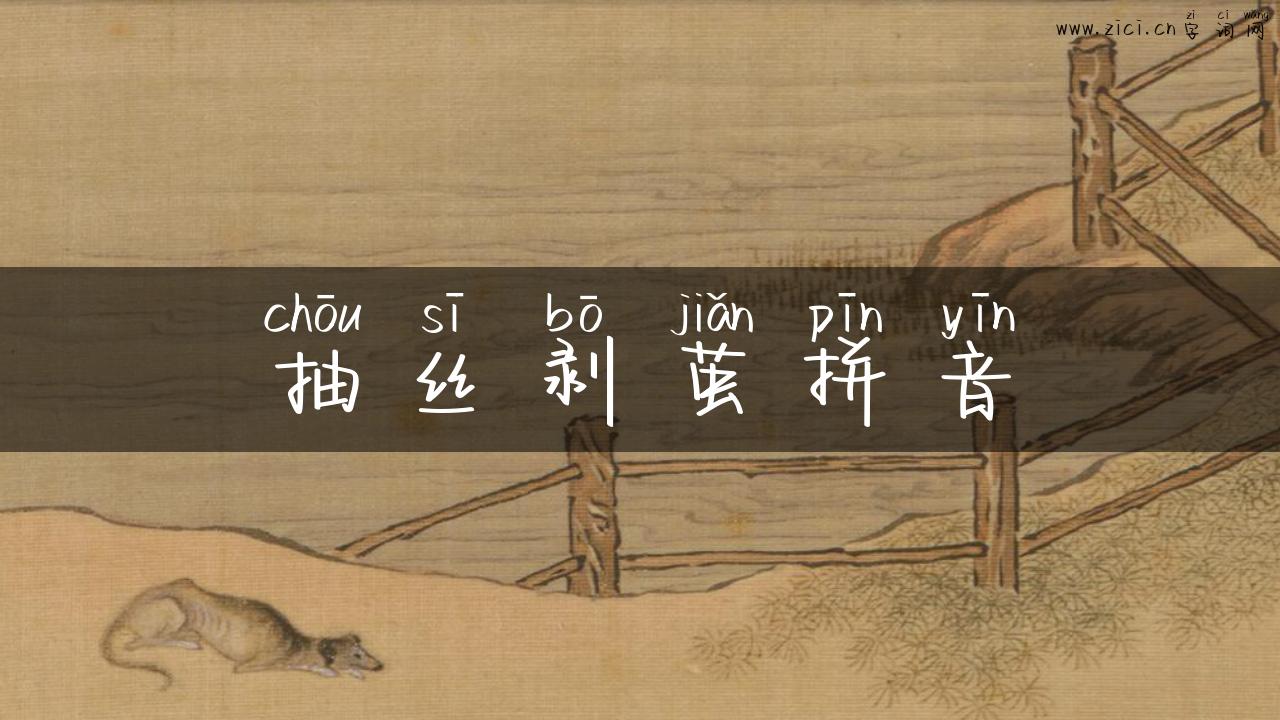 zì cí wǎng
www.zici.cn 字词网
chōu sī bō jiǎn pīn yīn
抽丝剥茧拼音